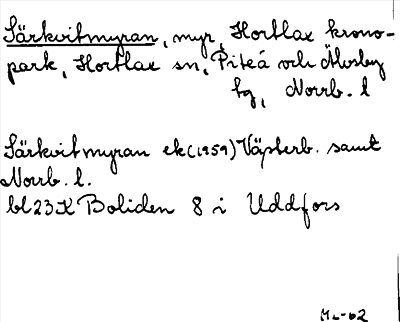 Särkvitmyran, myr, Hortlax krono-
park, Hortlax sn, Piteå och Älvsby
tg, Norrb. l
Särkvitmyran ek (1959) Västerb. samt
Norrb. l.
bl 23K Boliden 8 i Uddfors